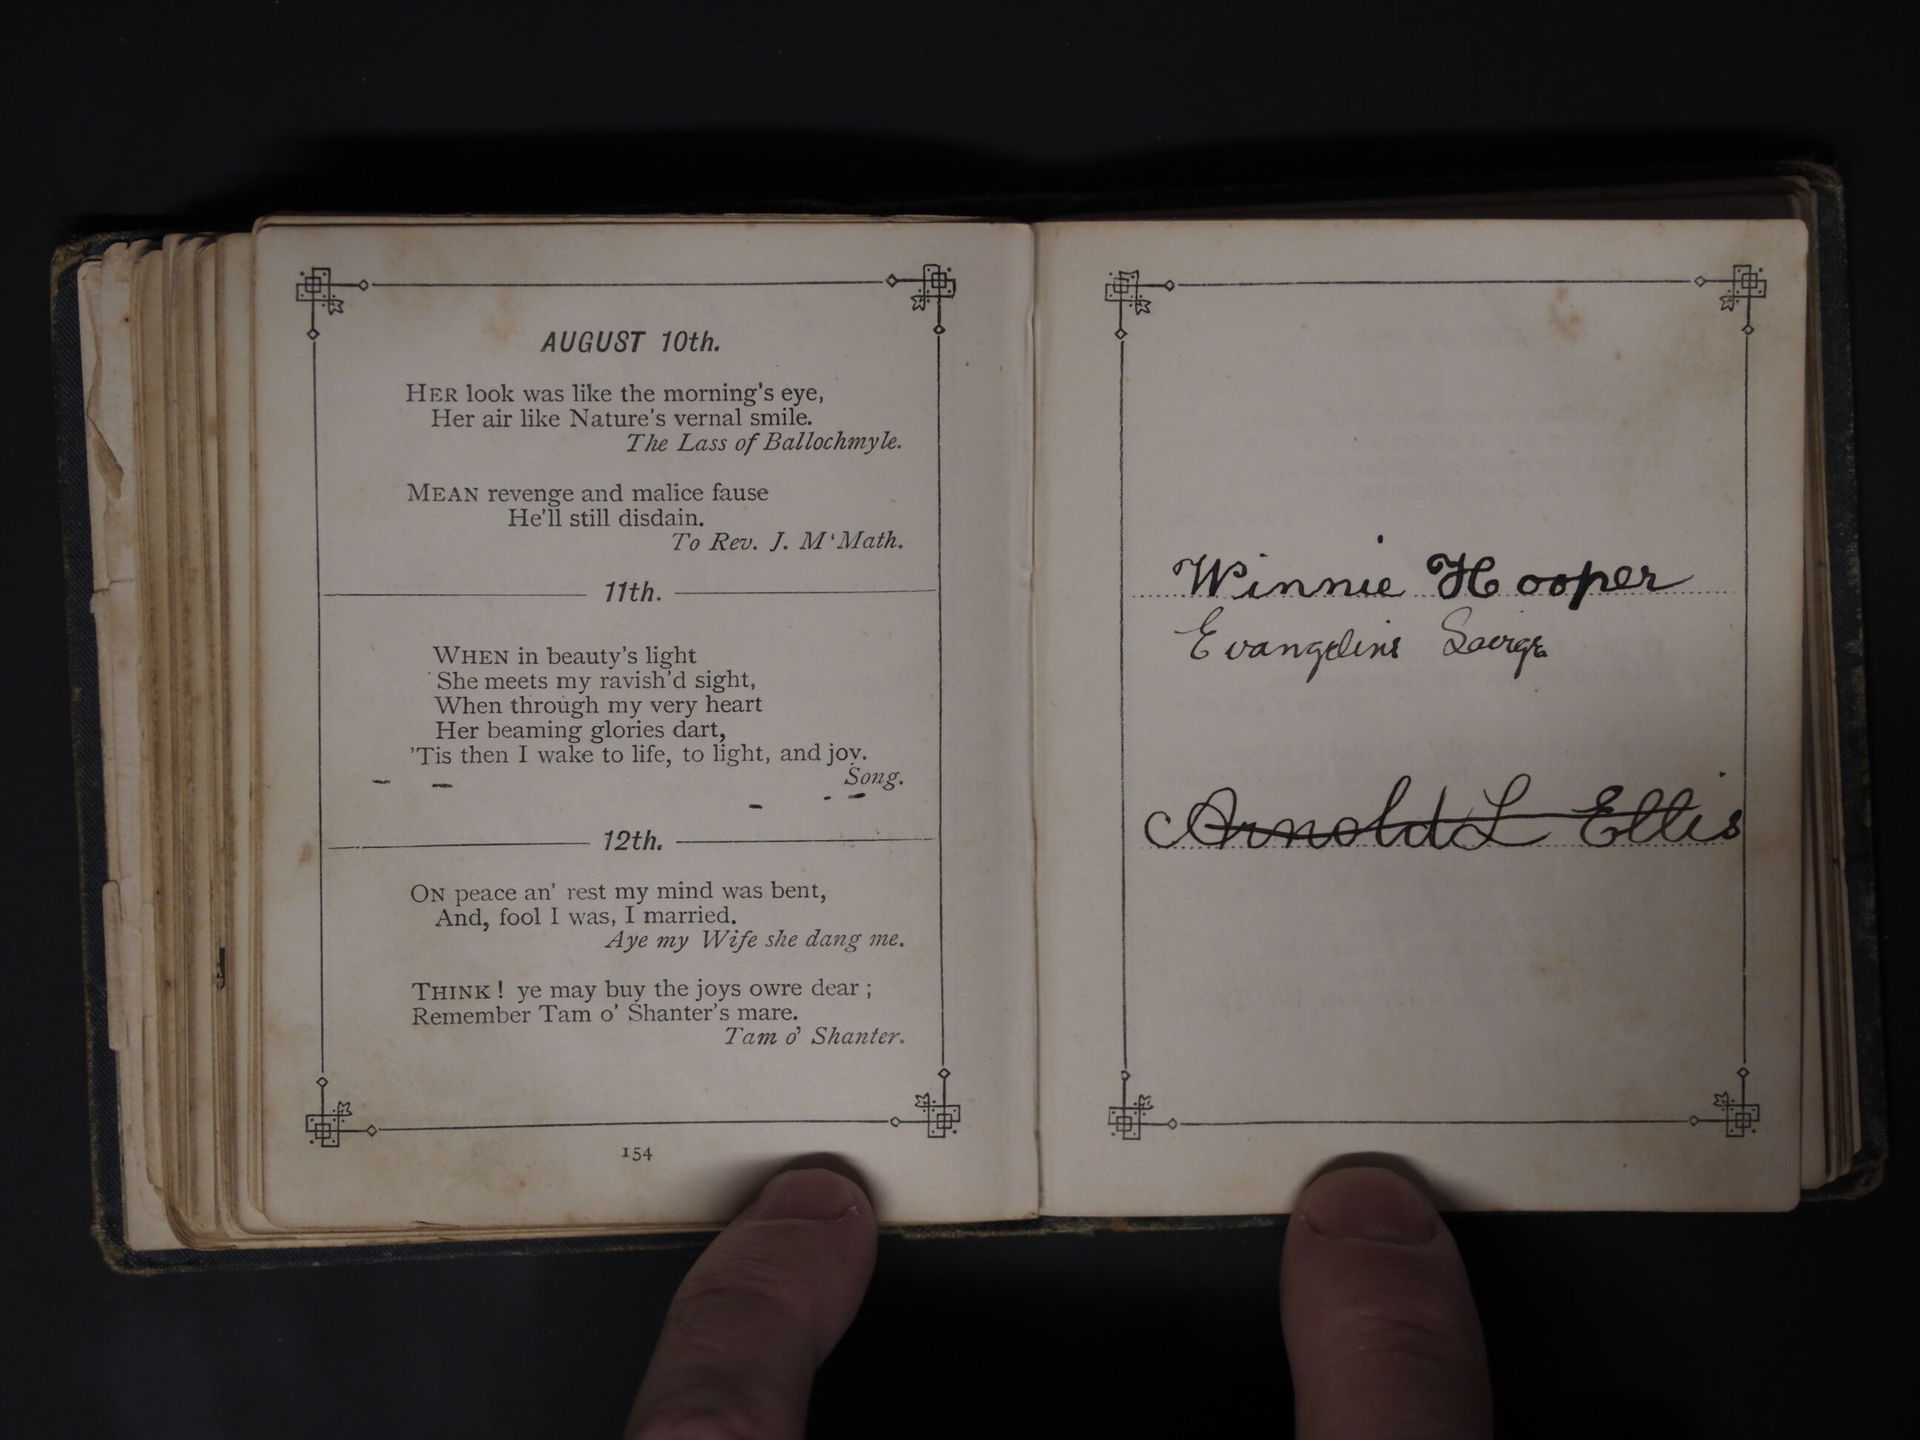 AUGUST 10th.
HER look was like the morning's eye,
Her air like Nature's vernal smile.
The Lass of Ballochmyle.
MEAN revenge and malice fause
He'll still disdain.
To Rev. J. M‘Math.
11th.
WHEN in beauty's light
She meets my ravish'd sight,
When through my very heart
Her beaming glories dart,
'Tis then I wake to life, to light, and joy.
Song.
12th.
ON peace an' rest my mind was bent,
And, fool I was, I married.
Aye my Wife she dang me.
THINK! ye may buy the joys owre dear;
Remember Tam o' Shanter's mare.
Tam o' Shanter.
154
Winnie Hooper
Evangeline
Arnold L Ellis